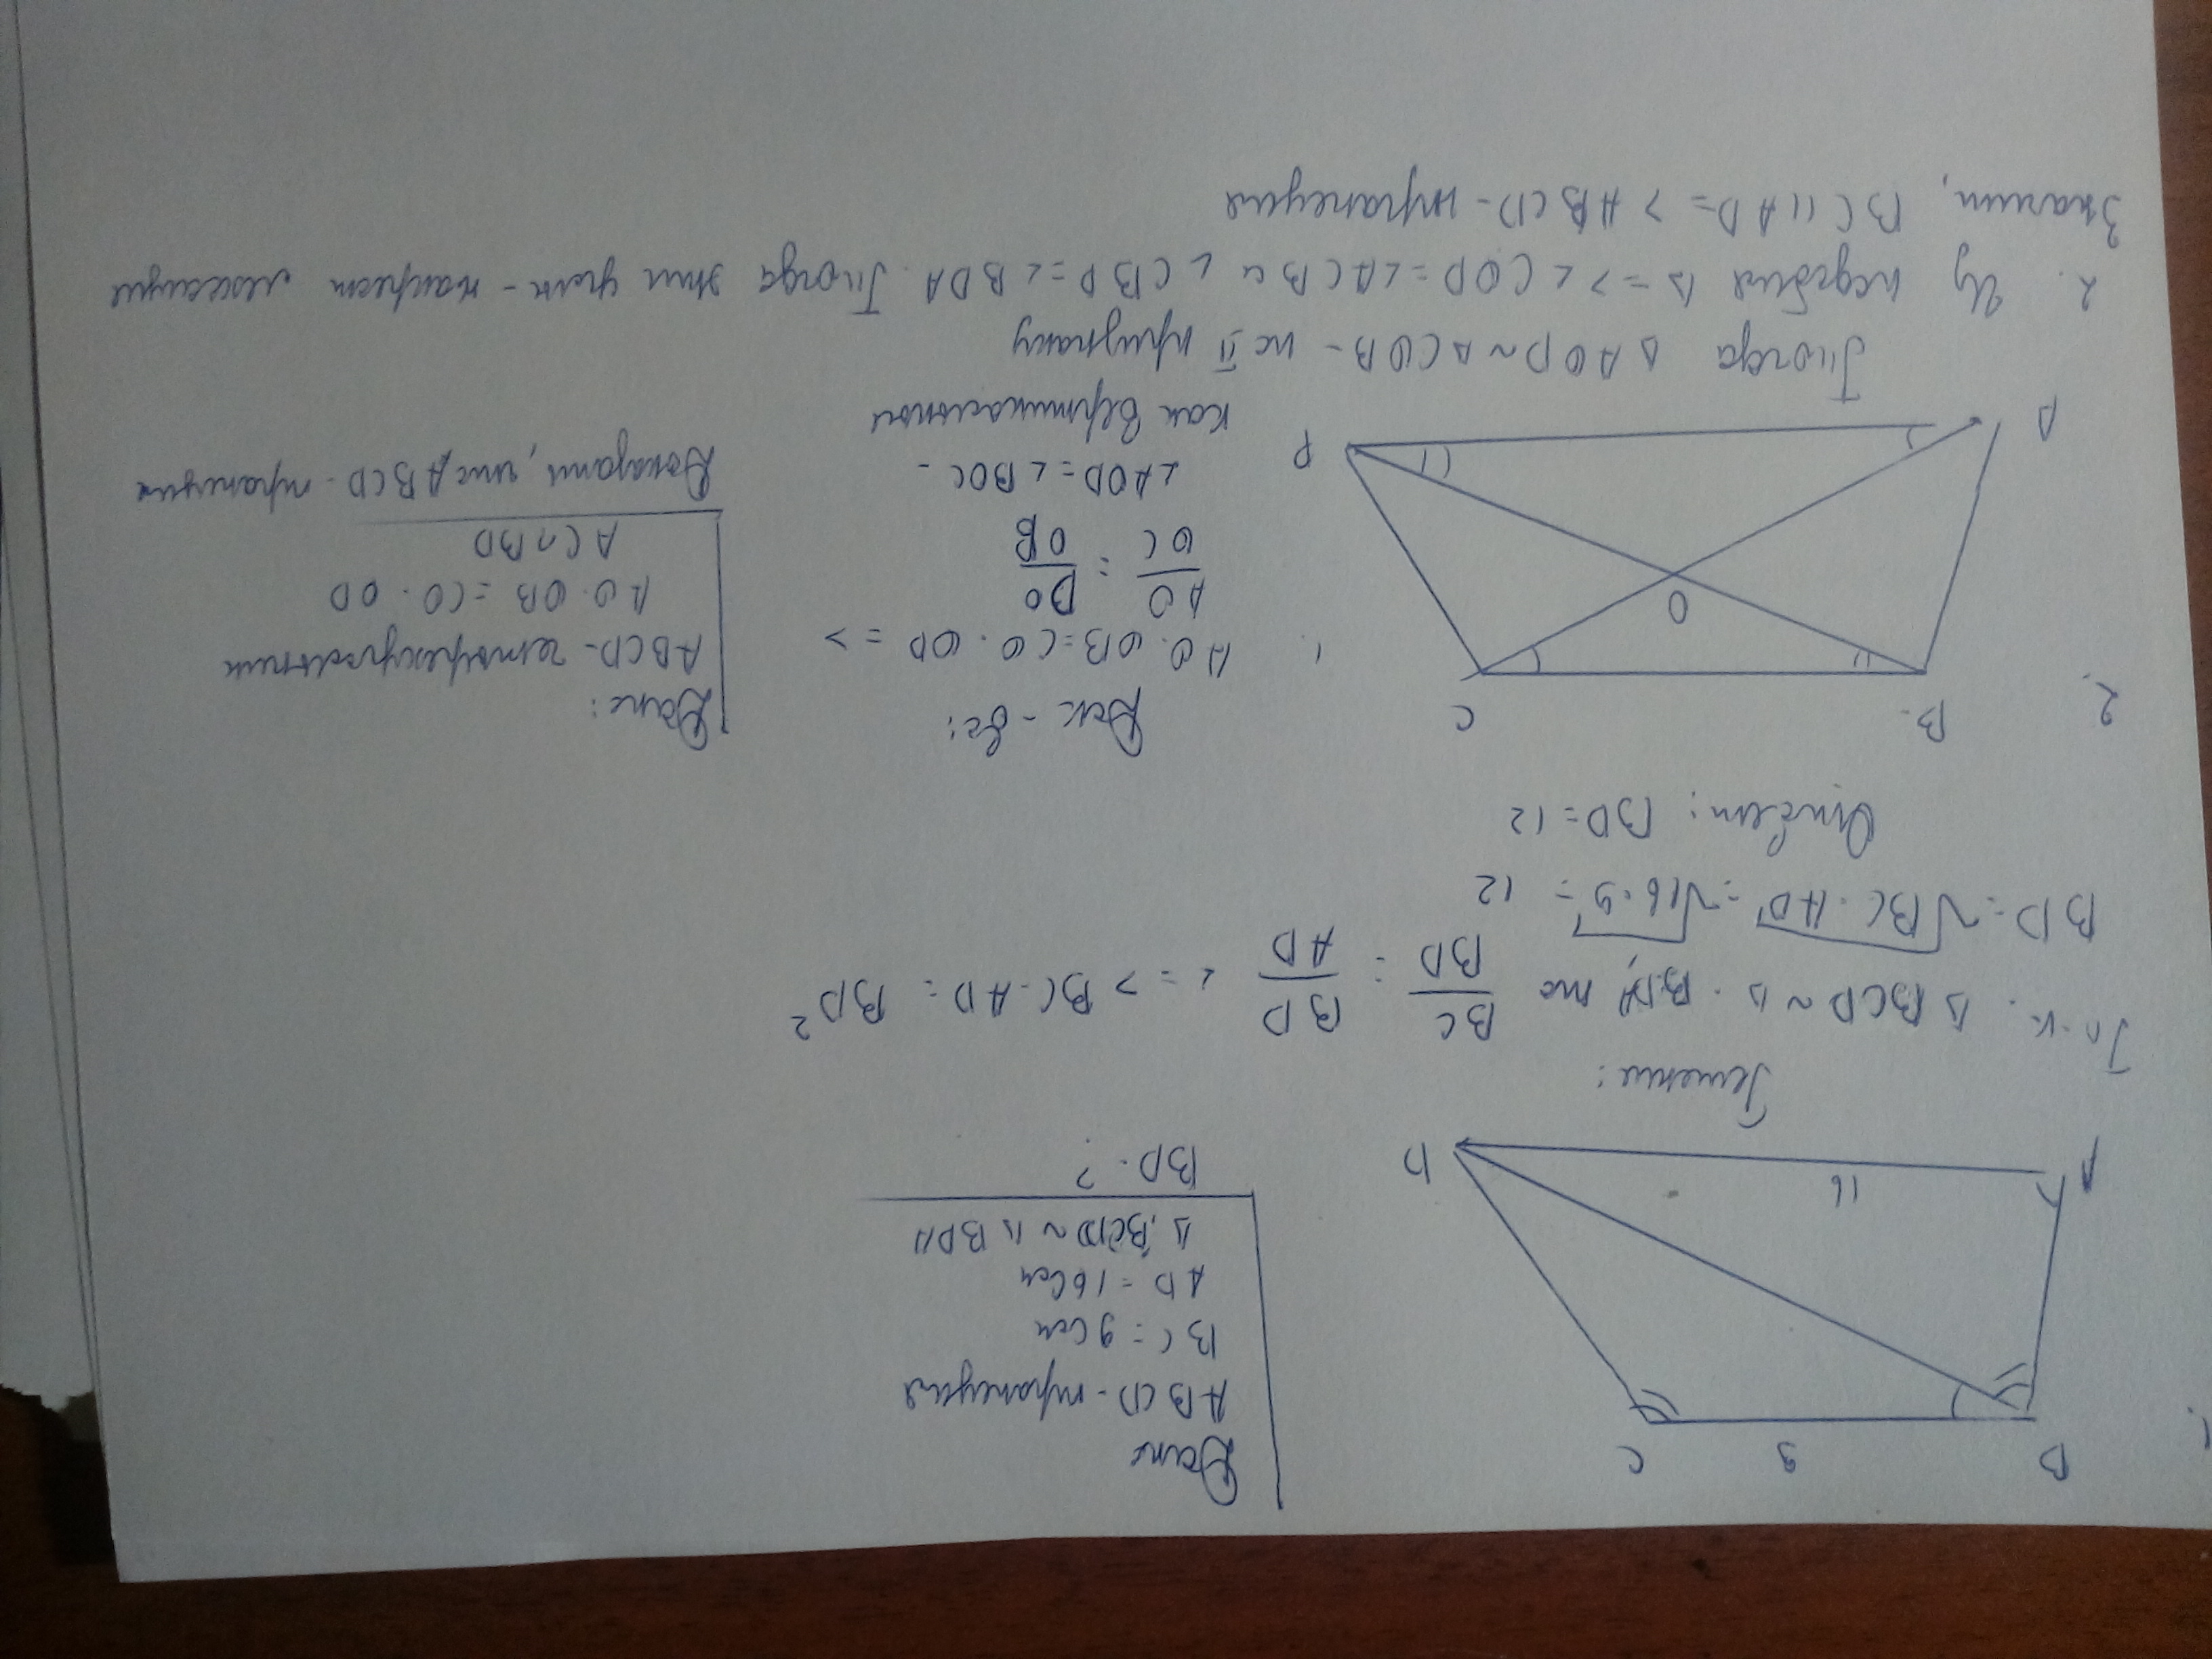 1.
B 9 C
A 16 D
Дано
ABCD - трапеция
BC = 9 см
AD = 16 см
Δ BCD ~ Δ BDA
BD - ?
Решение:
Т.к. Δ BCD ~ Δ BDA, то BC/BD = BD/AD <=> BC · AD = BD²
BD = √BC · AD = √16 · 9 = 12
Ответ: BD = 12
2.
B C
O
A D
Док-во:
1. AO · OB = CO · OD =>
AO/OC = DO/OB
∠AOD = ∠BOC -
как вертикальные
Дано:
ABCD - четырехугольник
AO · OB = CO · OD
AC ∩ BD
Доказать, что ABCD - трапеция
Тогда Δ AOD ~ Δ COB - по II признаку
2. Из подобия Δ => ∠COD = ∠ACB и ∠CBD = ∠BDA. Тогда эти углы - накрест лежащие
Значит, BC || AD => ABCD - трапеция